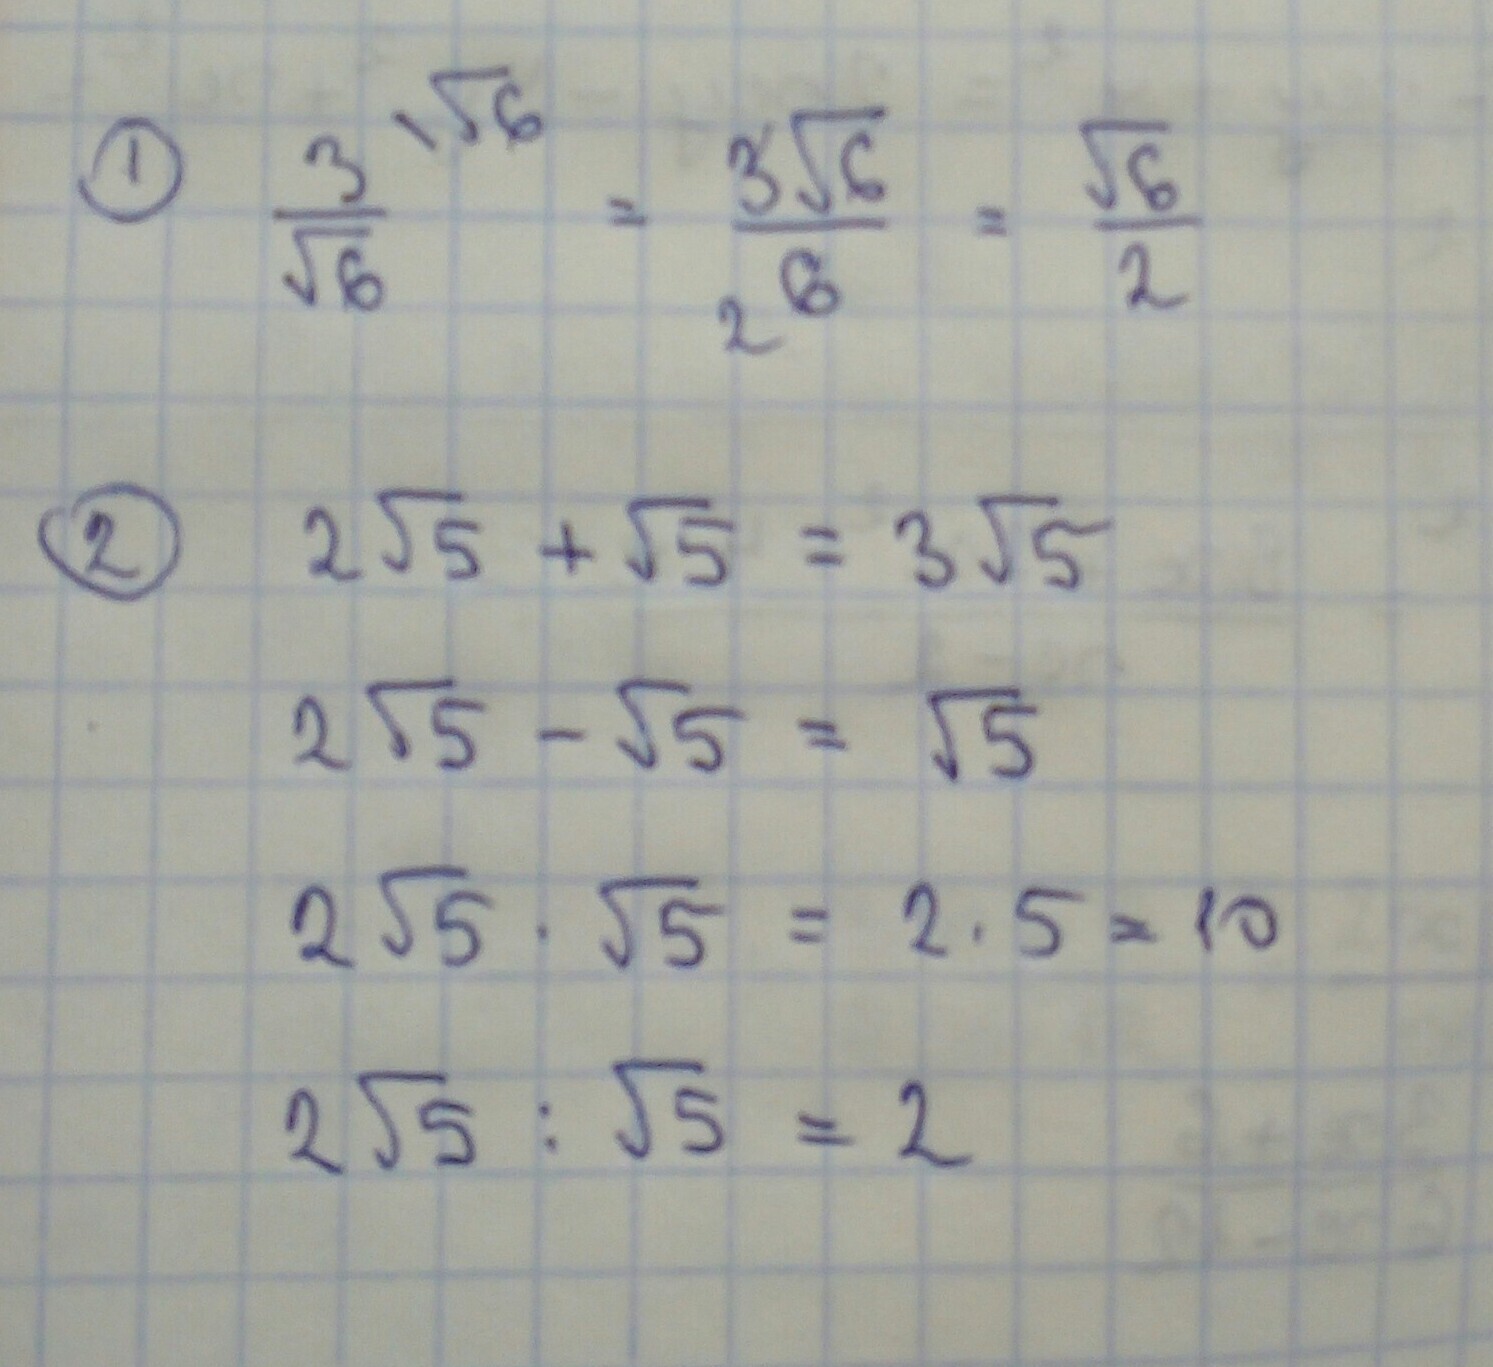 ① 3/√6 \√6 = 3√6/6 2 = √6/2
② 2√5 + √5 = 3√5
2√5 - √5 = √5
2√5 · √5 = 2 · 5 = 10
2√5 : √5 = 2